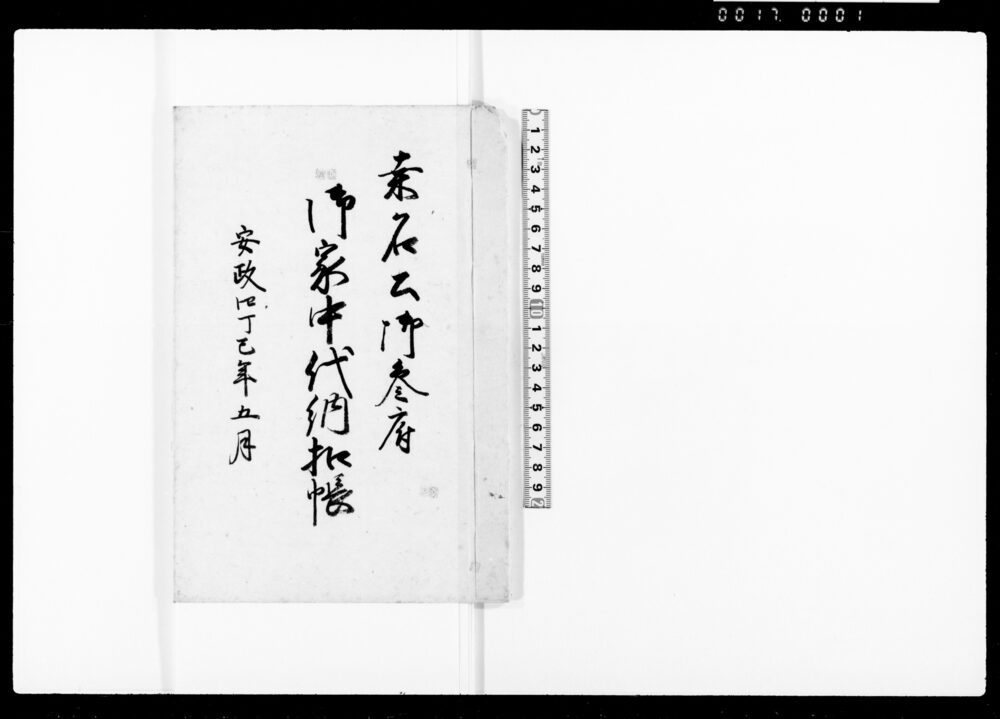 0017. 0001
桒名公御参府
御家中代納扣帳
安政四丁巳年五月
1 2 3 4 5 6 7 8 9 10 1 2 3 4 5 6 7 8 9 2